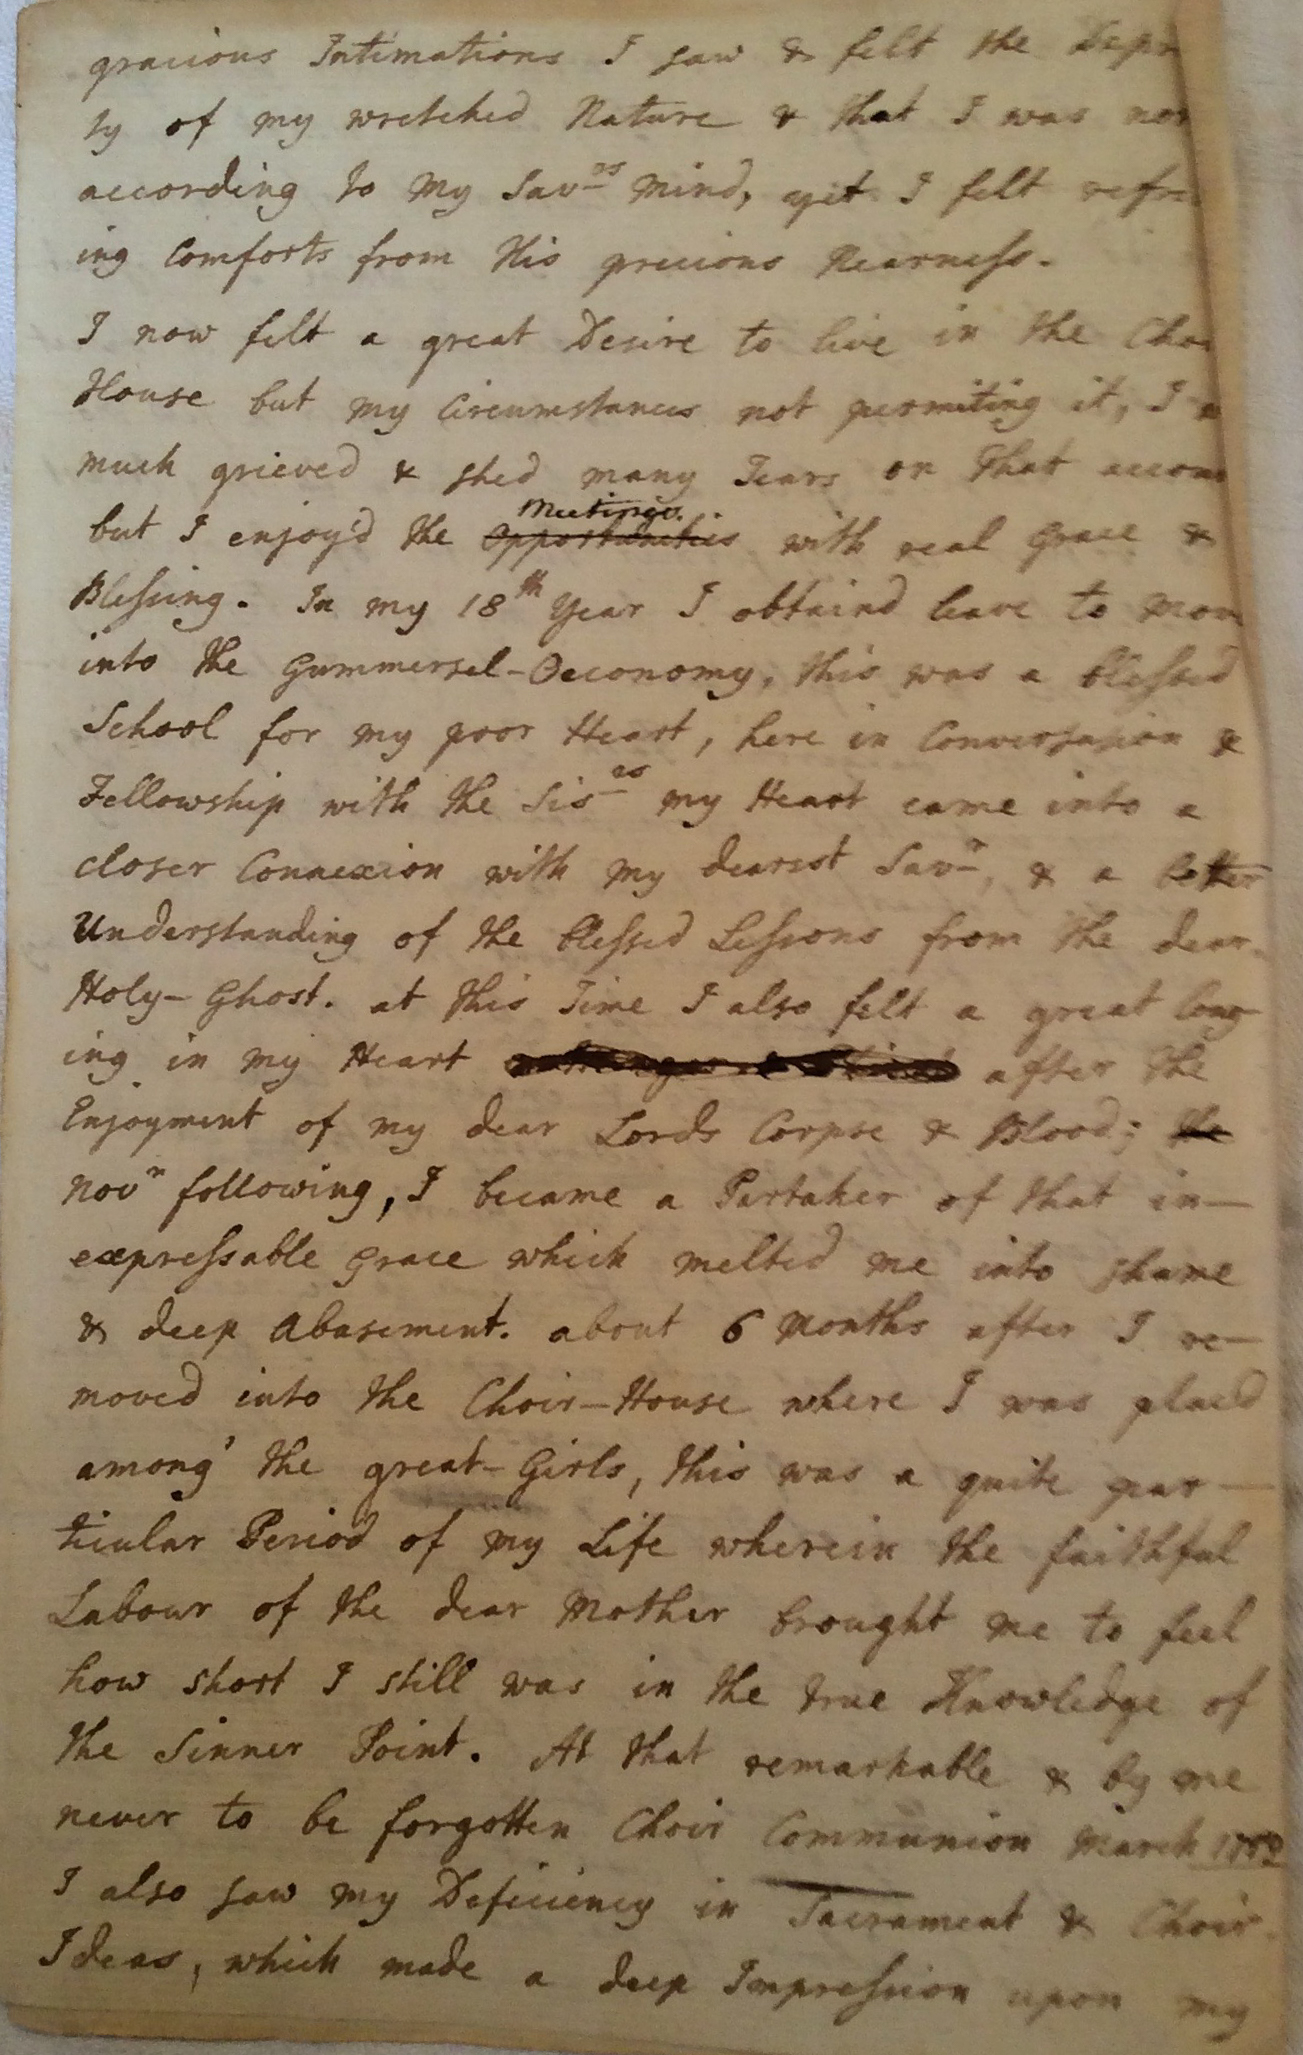 gracious Intimations I saw & felt the Depr
ty of my wretched Nature & that I was not
according to my Sav.rs Mind, yet I felt refre
ing Comforts from His precious Nearness.
I now felt a great Desire to live in the Choi
House but my Circumstances not permiting it, I w
much grieved & shed many Tears on that accou
but I enjoy'd the Opportunities Meetings. with real Grace &
Blessing. In my 18th Year I obtaind leave to mov
into the Gummersel-Oeconomy, this was a blessed
School for my poor Heart, here in Conversasion &
Fellowship with the Sis.rs my Heart came into a
closer Connexion with my dearest Sav.r, & a better
Understanding of the blessed Lessons from the dear
Holy-Ghost. at this Time I also felt a great long
ing in my Heart after the
Enjoyment of my dear Lords Corpse & Blood; the
Nov.r following, I became a Partaker of that in—
expressable Grace which melted me into shame
& deep Abasement. about 6 Months after I re—
moved into the Choir-House where I was placed
among' the great-Girls, this was a quite par—
ticular Period of my Life wherein the faithful
Labour of the dear Mother brought me to feel
how short I still was in the true Knowledge of
the Sinner Point. At that remarkable & by me
never to be forgotten Choir Communion March
I also saw my Deficiency in Sacrament & Choir
Ideas, which made a deep Impression upon my